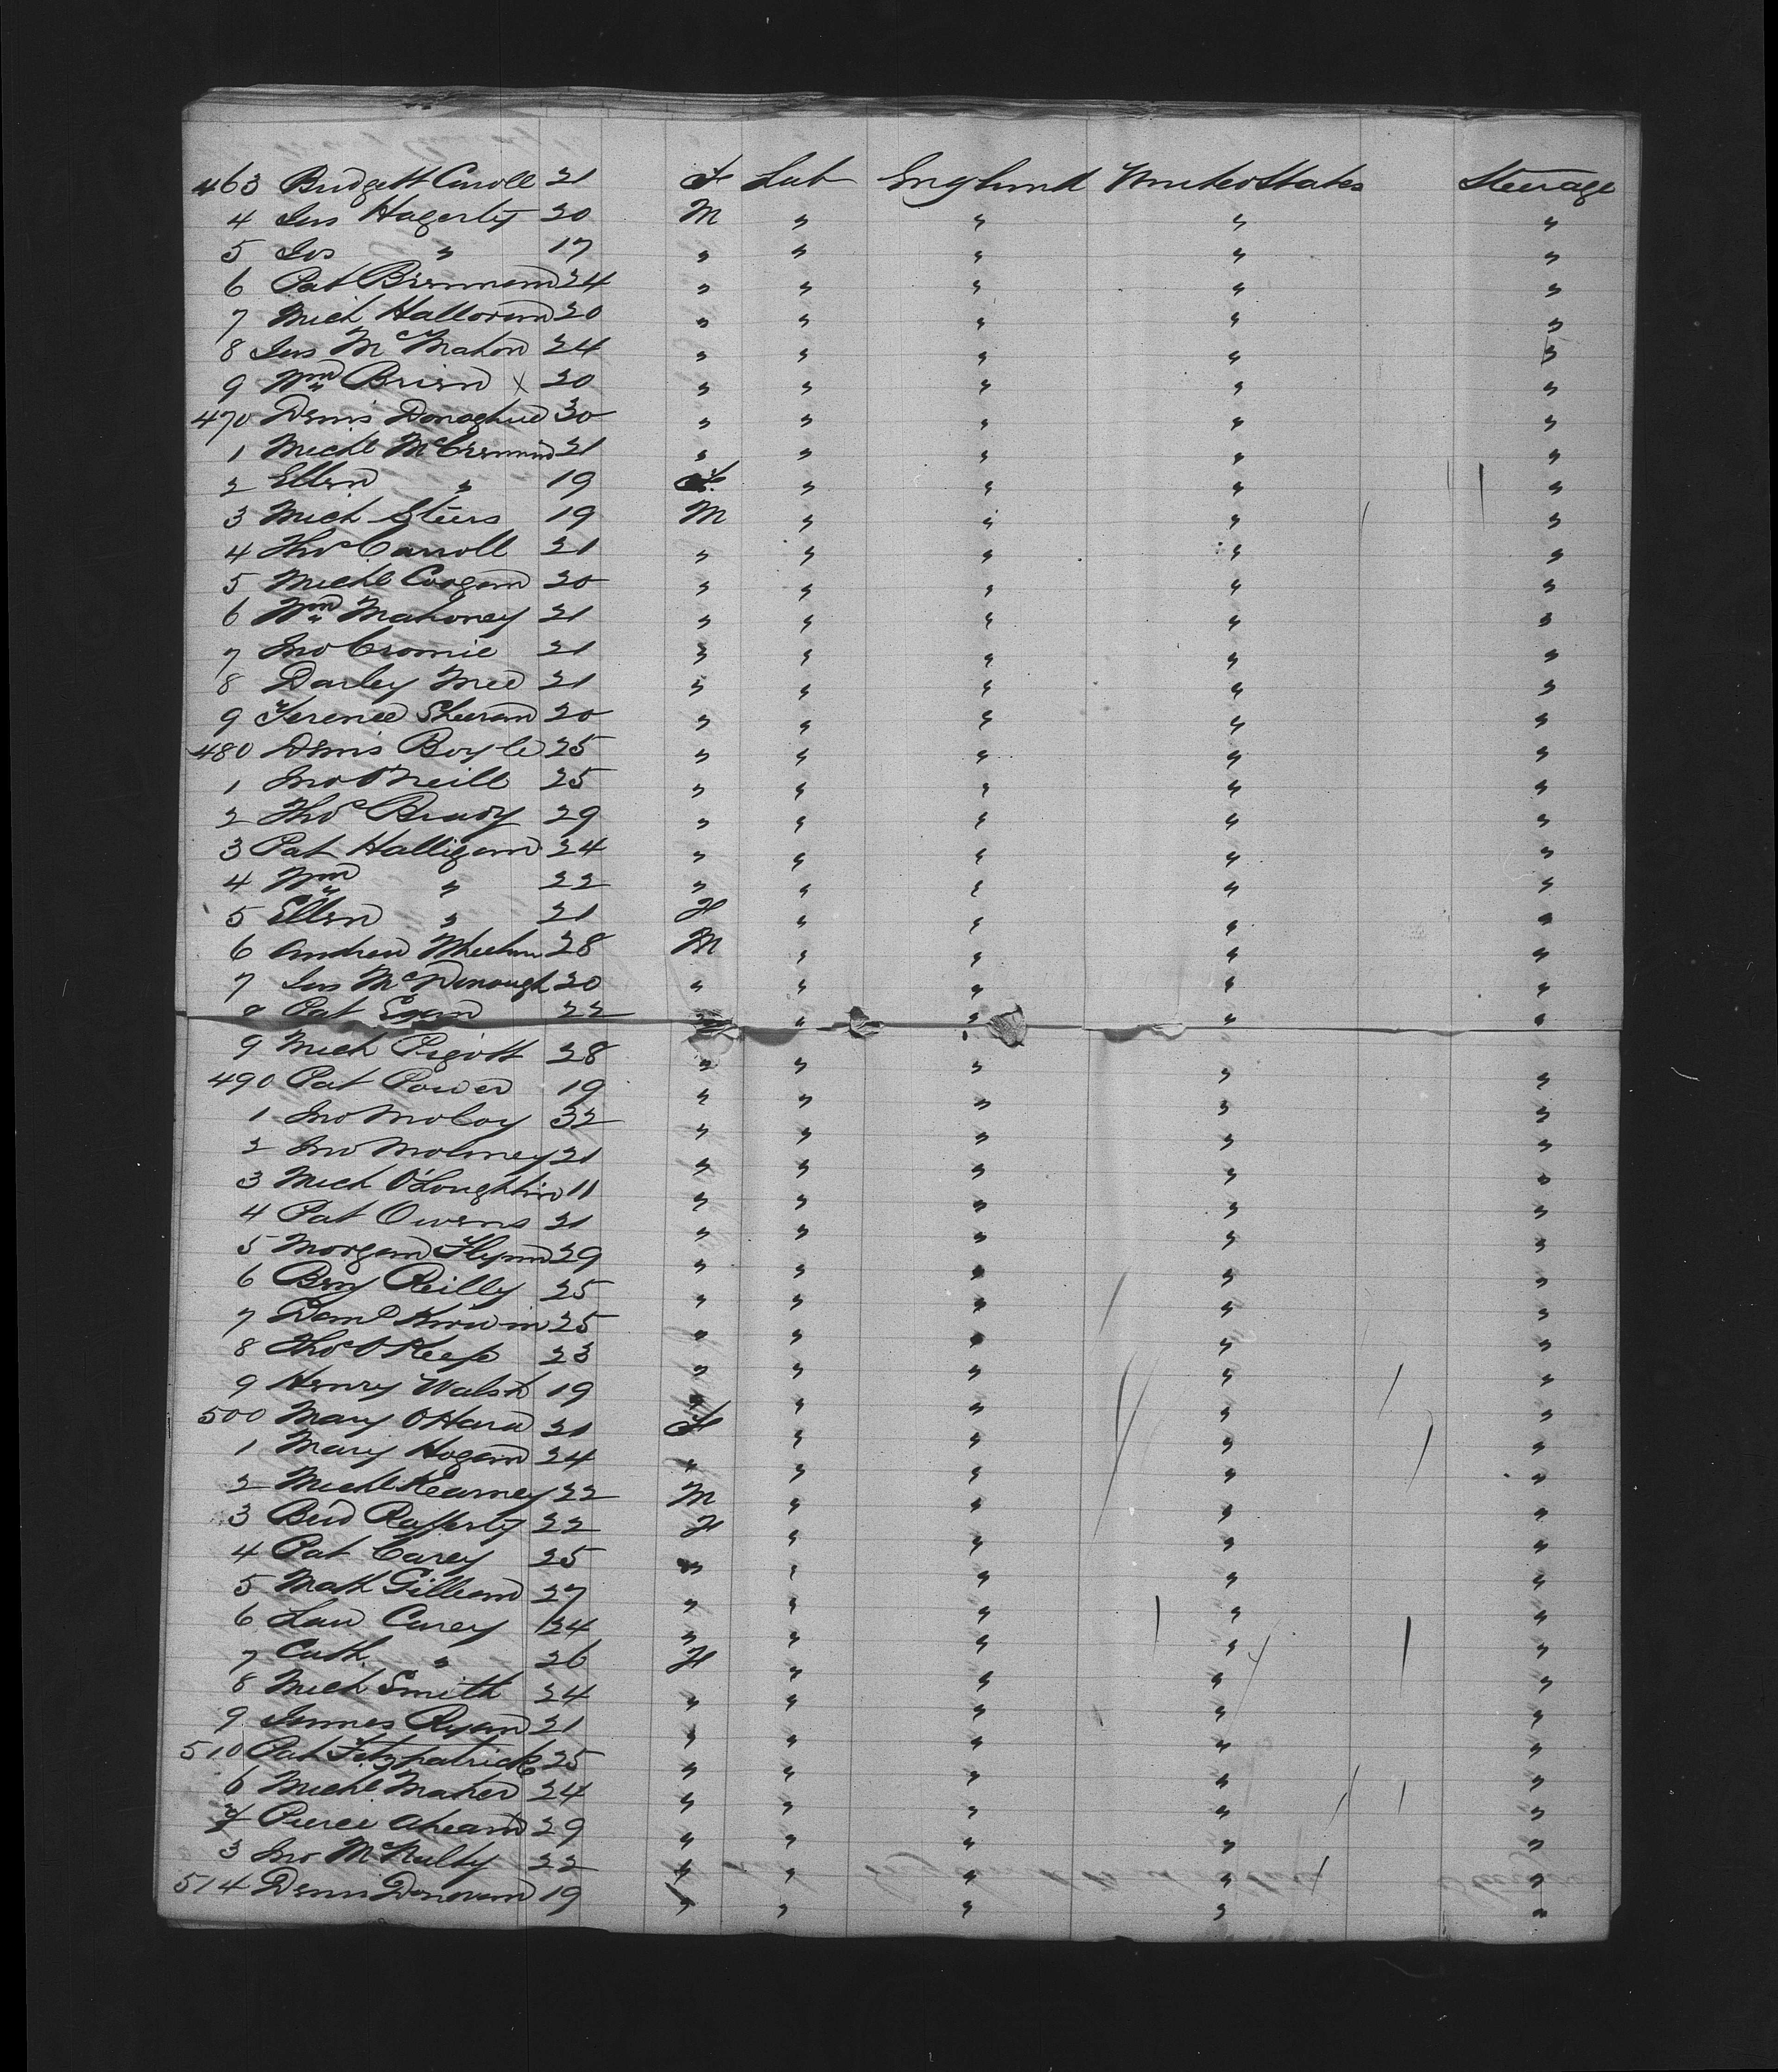 463 Bridgett Caroll 21 F Lab England United States Steerage
4 Jas Hagerty 20 M " " " "
5 Jos " 17 " " " " "
6 Pat Brennan 24 " " " " "
7 Mich Halloran 20 " " " " "
8 Jas McMahon 24 " " " " "
9 Wm Brien x 20 " " " " "
470 Denis Donoghue 30 " " " " "
1 Michl McCrennin 21 " " " " "
2 Ellen " 19 F " " " "
3 Mich Steers 19 M " " " "
4 Thos Carroll 21 " " " " "
5 Michl Coogan 20 " " " " "
6 Wm Mahoney 21 " " " " "
7 Jno Cromie 21 " " " " "
8 Darley Mee 21 " " " " "
9 Terence Sheeran 20 " " " " "
480 Denis Boyle 25 " " " " "
1 Jno O'Neill 25 " " " " "
2 Thos Brady 29 " " " " "
3 Pat Halligan 24 " " " " "
4 Wm " 22 " " " " "
5 Ellen " 21 F " " " "
6 Andrew Wheelan 28 M " " " "
7 Jas McDonough 20 " " " " "
8 Pat Egan 22 " " " " "
9 Mich Pigott 28 " " " " "
490 Pat Power 19 " " " " "
1 Jno Moloy 32 " " " " "
2 Jno Moloney 21 " " " " "
3 Mich O'Loughlin 11 " " " " "
4 Pat Owens 21 " " " " "
5 Morgan Flynn 29 " " " " "
6 Benj Reilly 25 " " " " "
7 Danl Kirwin 25 " " " " "
8 Thos O'Keefe 23 " " " " "
9 Henry Walsh 19 " " " " "
500 Mary O'Hara 21 F " " " "
1 Mary Hogan 24 " " " " "
2 Michl Kearney 22 M " " " "
3 Brid Rafferty 22 F " " " "
4 Pat Carey 25 " " " "
5 Math Gillean 27 " " " " "
6 Law Carey 24 " " " " "
7 Cath " 26 F " " " "
8 Mich Smith 24 " " " " "
9 James Ryan 21 " " " " "
510 Pat Fitzpatrick 25 " " " " "
6 Michl Maher 24 " " " " "
Pierce Ahearn 29 " " " " "
3 Jno McNulty 22 " " " " "
514 Denis Donovan 19 " " " " "